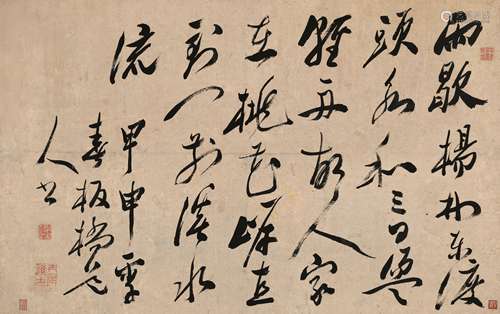 雨歇楊林東渡
頭永和三日盪
輕舟故人家
在桃花岸直
到門前溪水
流
甲申年
春板橋老
人書